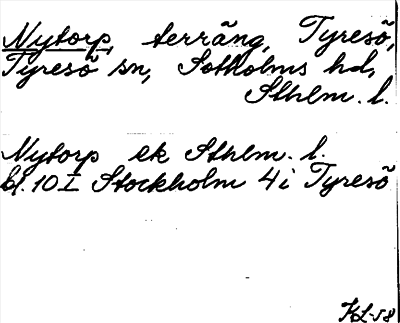 Nytorp, terräng, Tyresö,
Tyresö sn, Sotholms hd,
Sthlm. l.
Nytorp ek Sthlm. l.
bl. 10 I Stockholm 4i Tyresö
KL-58